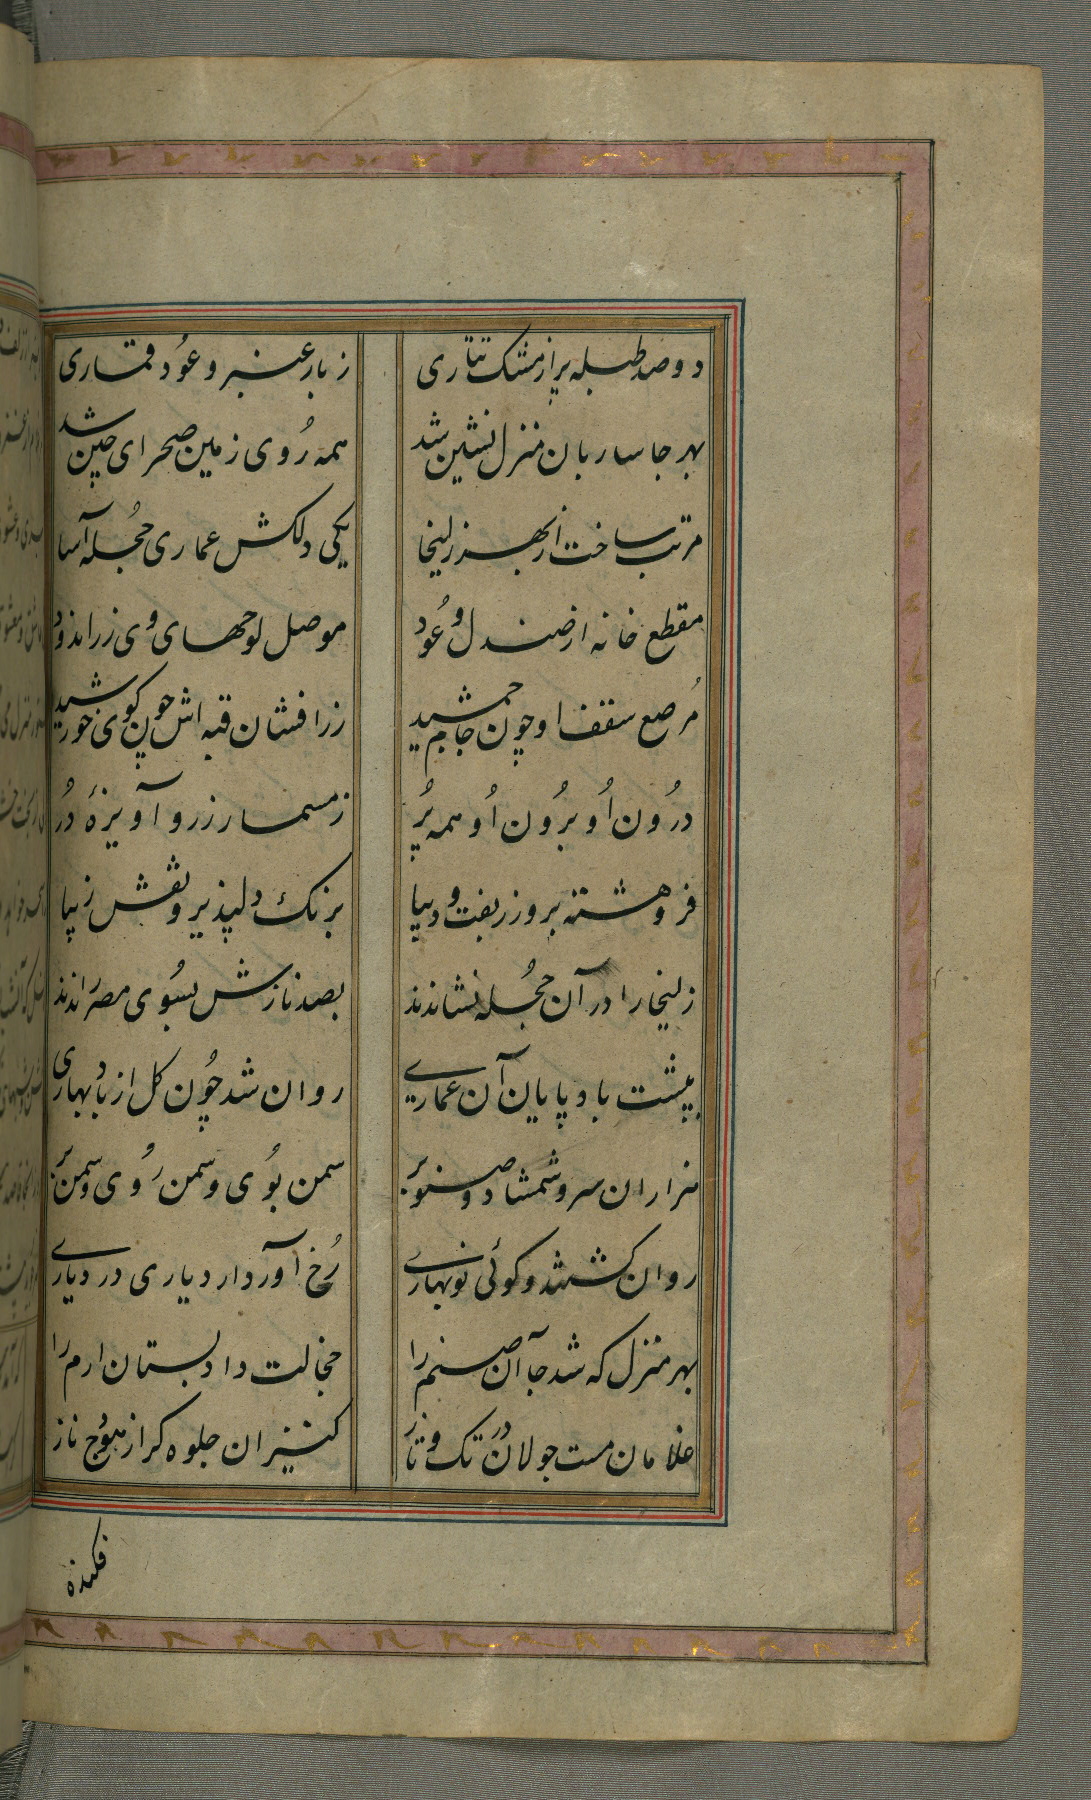 دو صد طبله پر از مشک تتاری ز بار عنبر و عود قماری
بهر جا ساربان منزل نشین شد همه رُوی زمین صحرای چین شد
مرتب ساخت از بهر زلیخا یکی دلکش عماری حُجله آسا
مقطع خانه از صندل و عُود موصل لوحهای وی زر اندود
مُرصع سقف او چون جام جمشید زر افشان قبه اش چون کوی خورشید
درُون اُو برُون اُو همه پُر ز مسمار زر و آویزهٔ دُر
فرو هشته برو زربفت و دیبا برنک دلپذیر و نقش زیبا
زلیخا را در آن حُجله نشاندند بصد نازش بسُوی مصر راندند
بپشت باد پایان آن عماری روان شد چُون کل از باد بهاری
هزاران سرو و شمشاد و صنوبر سمن بُوی و سمن رُوی و سمن بر
روان کشتند و کوئی نو بهاری رُخ آورد از دیاری در دیاری
بهر منزل که شد جا آن صنم را خجالت داد بستان ارم را
غلامان مست جولان در تک و تاز کنیزان جلوه کر از هودج ناز
فکنده